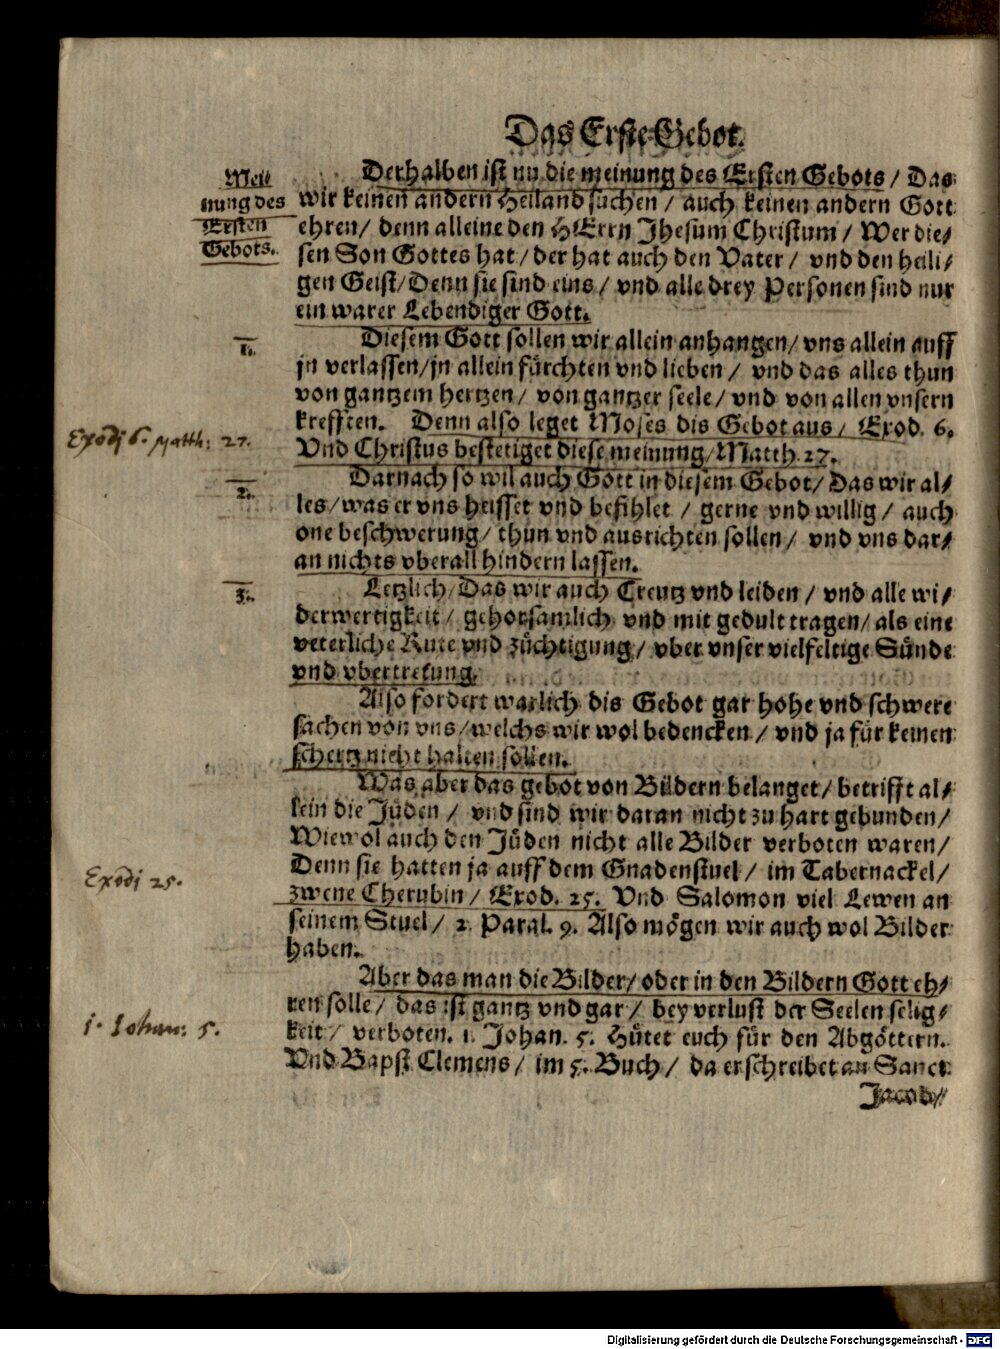 Das Erste Gebot.
Mei-
nung des
Ersten
Gebots.
Derhalben ist nu die meinung des Ersten Gebots / Das
wir keinen andern Heiland suchen / auch keinen andern Gott
ehren / denn alleine den HErrn Jhesum Christum / Wer die-
sen Son Gottes hat / der hat auch den Vater / vnd den heili-
gen Geist / Denn sie sind eins / vnd alle drey Personen sind nur
ein warer Lebendiger Gott.
1.
Diesem Gott sollen wir allein anhangen / vns allein auff
jn verlassen / jn allein fürchten vnd lieben / vnd das alles thun
von gantzem hertzen / von gantzer seele / vnd von allen vnsern
krefften. Denn also leget Moses dis Gebot aus / Exod. 6.
Exodi 6. Matth: 27.
Vnd Christus bestetiget diese meinung / Matth. 27.
2.
Darnach so wil auch Gott in diesem Gebot / Das wir al-
les / was er vns heisset vnd befihlet / gerne vnd willig / auch
one beschwerung / thun vnd ausrichten sollen / vnd vns dar-
an nichts vberall hindern lassen.
3.
Letzlich / Das wir auch Creutz vnd leiden / vnd alle wi-
derwertigkeit / gehorsamlich vnd mit gedult tragen / als eine
veterliche Rute vnd züchtigung / vber vnser vielfeltige Sünde
vnd vbertretung.
Also fordert warlich dis Gebot gar hohe vnd schwere
sachen von vns / welchs wir wol bedencken / vnd ja für keinen
schertz nicht halten sollen.
Was aber das gebot von Bildern belanget / betrifft al-
lein die Jüden / vnd sind wir daran nicht zu hart gebunden /
Wiewol auch den Jüden nicht alle Bilder verboten waren /
Denn sie hatten ja auff dem Gnadenstuel / im Tabernackel /
Exodi 25.
zwene Cherubin / Exod. 25. Vnd Salomon viel Lewen an
seinem Stuel / 2. Paral. 9. Also mögen wir auch wol Bilder
haben.
Aber das man die Bilder / oder in den Bildern Gott eh-
ren solle / das ist gantz vnd gar / bey verlust der Seelen selig-
1. Iohan: 5.
keit / verboten. 1. Johan. 5. Hütet euch für den Abgöttern.
Vnd Bapst Clemens / im 5. Buch / da er schreibet an Sanct
Jacob /
Digitalisierung gefördert durch die Deutsche Forschungsgemeinschaft - DFG